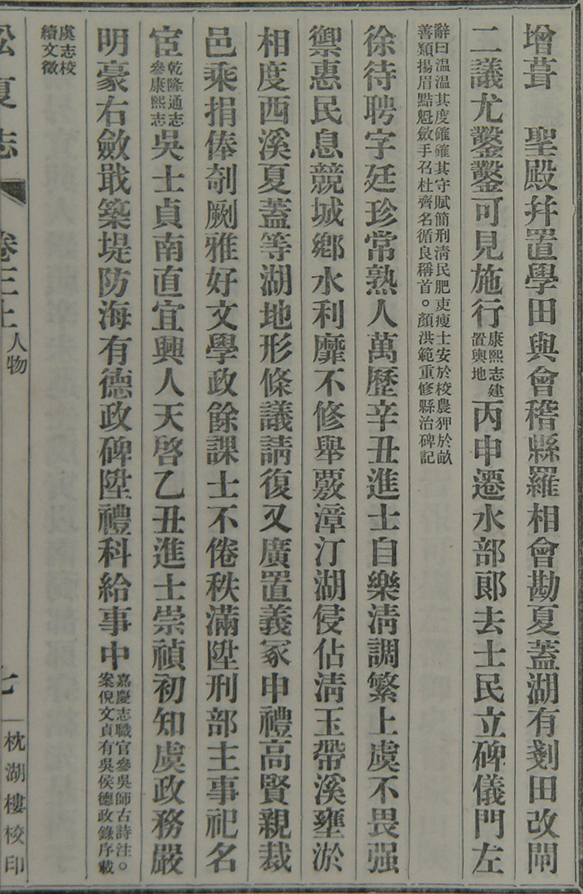 增葺　聖殿幷置學田與會稽縣羅相會勘夏蓋湖有剗田改閘
二議尤鑿鑿可見施行康熙志建置輿地丙申遷水部郞去士民立碑儀門左
辭曰温温其度確確其守賦簡刑淸民肥吏瘦士安於校農狎於畝
善類揚眉點魁斂手召杜齊名循良稱首。顏洪範重修縣治碑記
徐待聘字廷珍常熟人萬歷辛丑進士自樂淸調繁上虞不畏强
禦惠民息競城鄕水利靡不修舉覈漳汀湖侵佔淸玉帶溪壅淤
相度西溪夏蓋等湖地形條議請復又廣置義冢申禮高賢親裁
邑乘捐俸剞劂雅好文學政餘課士不倦秩滿陞刑部主事祀名
宦乾隆通志參康熙志吳士貞南直宜興人天啓乙丑進士崇禎初知虞政務嚴
明豪右斂戢築堤防海有德政碑陞禮科給事中嘉慶志職官參吳師古詩注。案倪文貞有吳侯德政錄序載
虞志校續文徵
松夏志
卷三上
人物
七
枕湖樓校印